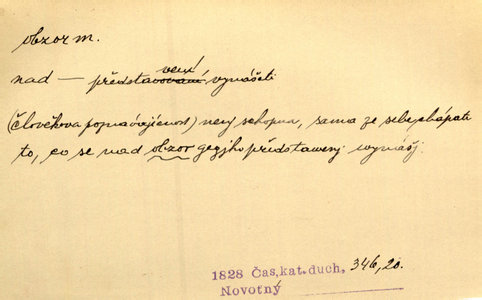 obzor m.
nad — představení vynášeti
(člověkova poznávajícnost) nenj schopna, sama ze sebe chápati
to, co se nad obzor gegjho představenj wynášj.
1828 Čas. kat. duch. 346, 20.
Novotný